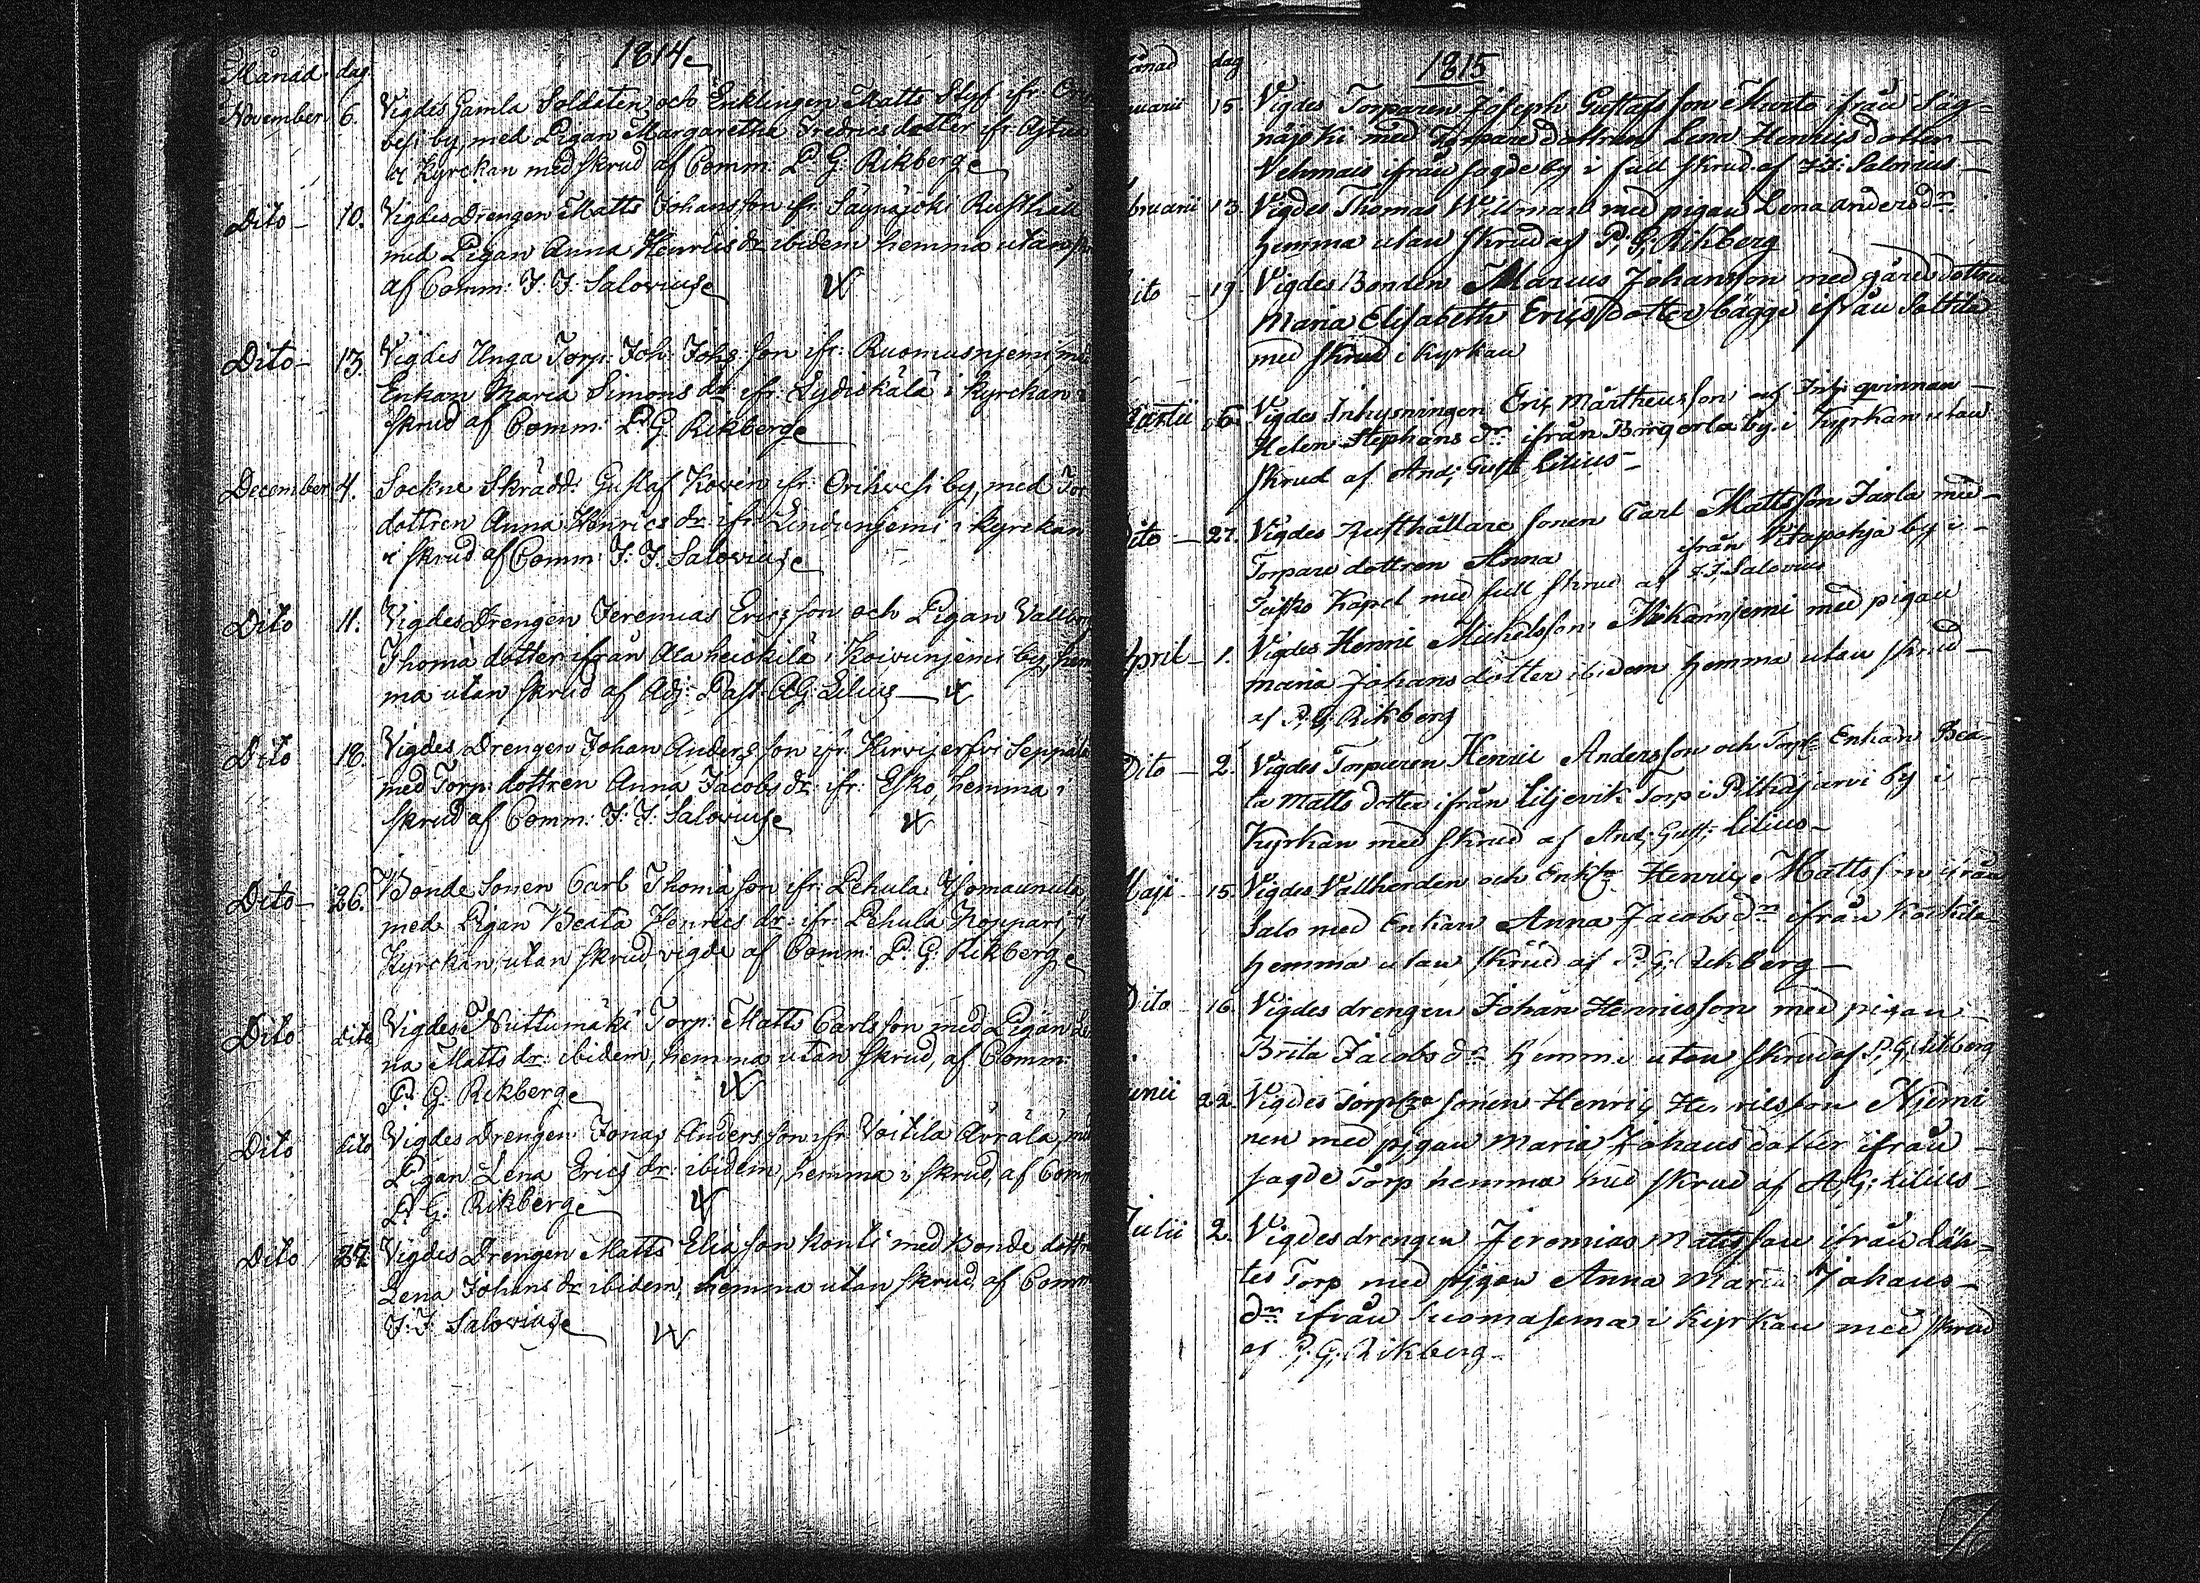 1814
Månad. dag.
November. 6. Vigdes Gamla Soldaten och Enklingen Matts Slyf ifr.
vesi by, med Pigan Margaretha Fredrics dotter ifr.
Kyrckan med skrud af Comm: P. G. Rikberg
Dito 10. Vigdes Drengen Matts Johansson ifr. Säynäjoki Rusthåll
med Pigan Anna Henrics dr ibidem hemma utan
af Comm: J. J. Salovius
Dito 13. Vigdes Unga Torp: Joh: Johs: son ifr: Ruomusnjemi,
Enkan Maria Simons dr ifr: Lydickälä i kyrckan
skrud af Comm: P. G. Rikberg
December 4. Sockne Skrädd: Gustaf Kowén ifr: Orihvesi by, med Tor
dottren Anna Henrics dr ifr: Lindunjemi i kyrckan
i skrud af Comm: J. J. Salovius
Dito 11. Vigdes Drengen Jeremias Erics son och Pigan Vallborg
Thoma dotter ifrån Ala heickilä i Koivunjemi by, hem
ma utan skrud af Adj: Past: AG: Lilius
Dito 18. Vigdes Drengen Johan Anders son ifr. Hirvijerfvi Seppälä
med Torp: dottren Anna Jacobs dr: ifr: Esko, hemma i
skrud af Comm: J: J: Salovius
Dito 26. Bonde Sonen Carl Thomä son ifr: Pehula
med Pigan Beata Henrics dr: ifr: Pehula Noppari, i
Kyrckan, utan skrud, vigde af Comm: P. G. Rikberg
Dito dito Vigdes Nuttumäki Torp: Matts Carlsson med Pigan Le
na Matts dr: ibidem, hemma utan skrud, af Comm:
P. G. Rikberg
Dito dito Vigdes Drengen Jonas Anders son ifr Voitila Avrala,
Pigan Lena Erics dr: ibidem, hemma i skrud, af Comm
P. G. Rikberg
Dito 27. Vigdes Drengen Matts Elia son Konti med Bonde dottr
Lena Johans dr ibidem, hemma utan skrud, af Comm
J: J. Salovius
1815
ånad dag
uarii 15. Vigdes Torparen Joseph Gustafs son Murto ifrån Säy-
näjoki med Torpare dottren Lena Henrics dotter
Vehmais ifrån sagde by i full skrud af J: J: Salovius
bruarii 13. Vigdes Thomas Willman med pigan Lena anders dr
hemma utan skrud af P. G. Rikberg
ito 19. Vigdes Bonden Marcus Johansson med gårds dottren
Maria Elisabeth Erics dotter bägge ifrån Solttila
med skrud i kyrkan
Martii 6. Vigdes Inhysningen Eric Mårtheus son och Inh: qvinnan
Helen Stephans dr ifrån by i Kyrkan utan
skrud af And: Gust: Lilius
ito 27. Vigdes Rusthållare sonen Carl Mattsson Jarla med
Torpare dottren Anna ifrån Vitapohja by i
Kapel med full skrud af J: J: Salovius
April 1. Vigdes Henric Michelsson med pigan
Maria Johans dotter ibidem hemma utan skrud
af P. G. Rikberg
Dito 2. Vigdes Torparen Henric Andersson och Torp: Enkan Bea-
ta Matts dotter ifrån Liljevik Torp i Pitkäjärvi by i
Kyrkan med skrud af And: Gust: Lilius
Maji 15. Vigdes Vallherden och Henric Mattsson ifrån
Salo med Enkan Anna Jacobs dr ifrån Koikila
hemma utan skrud af P. G. Rikberg
Dito 16. Vigdes drengen Johan Henricsson med pigan
Brita Jacobs dr hemma utan skrud af P. G. Rikberg
unii 22. Vigdes sonen Henric Henricsson Njemi
nen med pigan Maria Johans dotter ifrån
sagde Torp hemma med skrud af A, G: Lilius
Julii 2. Vigdes drengen Jeremias Mattsson ifrån Läh-
tes Torp med pigan Anna Maria Johans
dr ifrån Suomasema i Kyrkan med skrud
af P. G. Rikberg